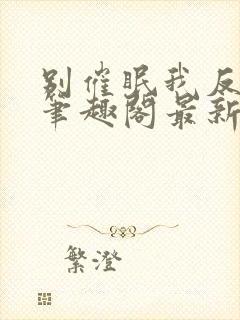 别催眠我反
笔趣阁最新
繁澄